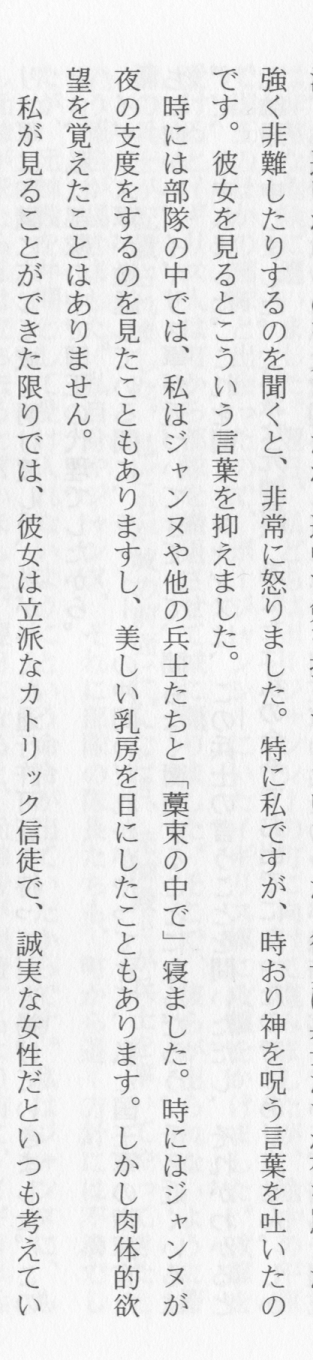 強く非難したりするのを聞くと、非常に怒りました。特に私ですが、時おり神を呪う言葉を吐いたの
です。彼女を見るとこういう言葉を抑えました。
時には部隊の中では、私はジャンヌや他の兵士たちと「藁束の中で」寝ました。時にはジャンヌが
夜の支度をするのを見たこともありますし、美しい乳房を目にしたこともあります。しかし肉体的欲
望を覚えたことはありません。
私が見ることができた限りでは、彼女は立派なカトリック信徒で、誠実な女性だといつも考えてい